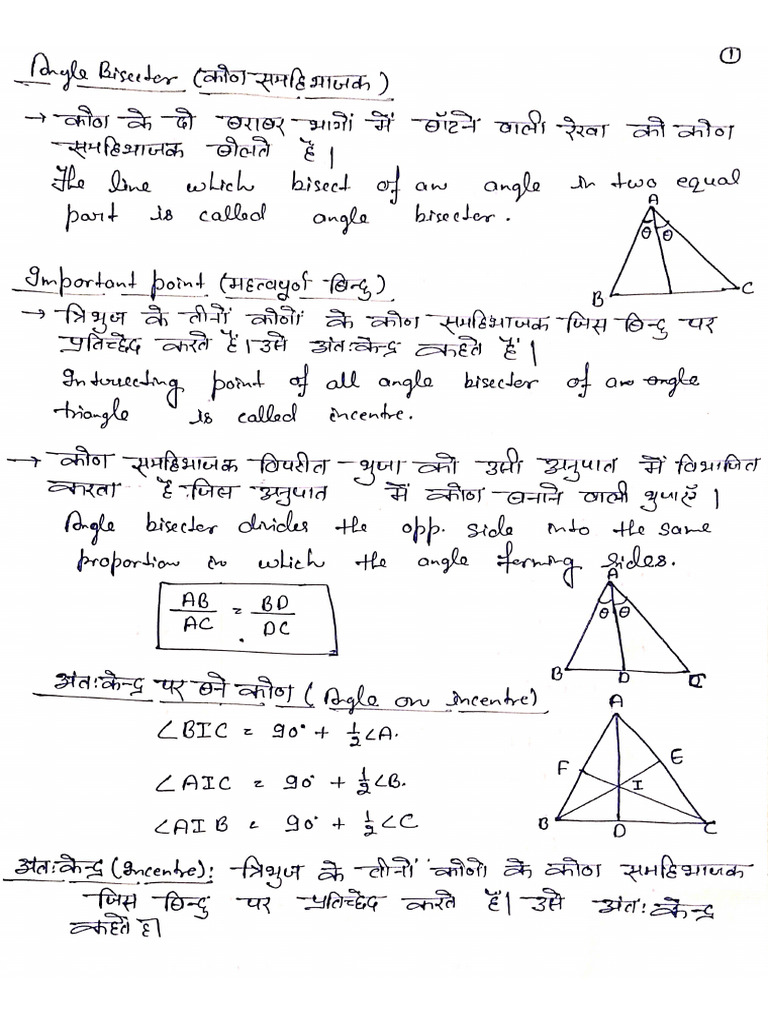 ①
Angle Bisecter (कोण समद्विभाजक)
→ कोण के दो बराबर भागों में बाँटने वाली रेखा को कोण
समद्विभाजक बोलते हैं।
The line which bisect of an angle in two equal
part is called angle bisecter.
A
θ θ
B C
Important point (महत्वपूर्ण बिन्दु)
→ त्रिभुज के तीनों कोणों के कोण समद्विभाजक जिस बिन्दु पर
प्रतिच्छेद करते हैं। उसे अंतःकेन्द्र कहते हैं।
Intersecting point of all angle bisecter of an angle
triangle is called incentre.
→ कोण समद्विभाजक विपरीत भुजा को उसी अनुपात में विभाजित
करता है जिस अनुपात में कोण बनाने वाली भुजाएँ।
Angle bisecter divides the opp. side into the same
proportion in which the angle forming sides.
AB/AC = BD/DC
A
θ θ
B D C
अंतःकेन्द्र पर बने कोण (Angle on incentre)
∠BIC = 90° + ½∠A.
∠AIC = 90° + ½∠B.
∠AIB = 90° + ½∠C
A
F E
I
B D C
अंतःकेन्द्र (Incentre): त्रिभुज के तीनों कोणों के कोण समद्विभाजक
जिस बिन्दु पर प्रतिच्छेद करते हैं। उसे अंतःकेन्द्र
कहते है।